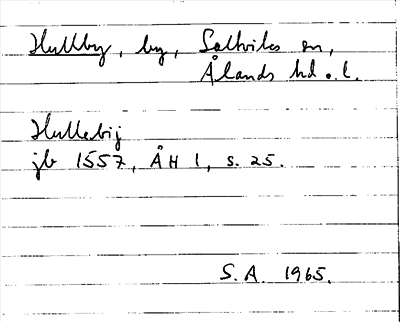 Hullby, by, Saltviks sn,
Ålands hd o. l.
Hullebij
jb 1557, ÅH 1, s. 25.
S.A. 1965.